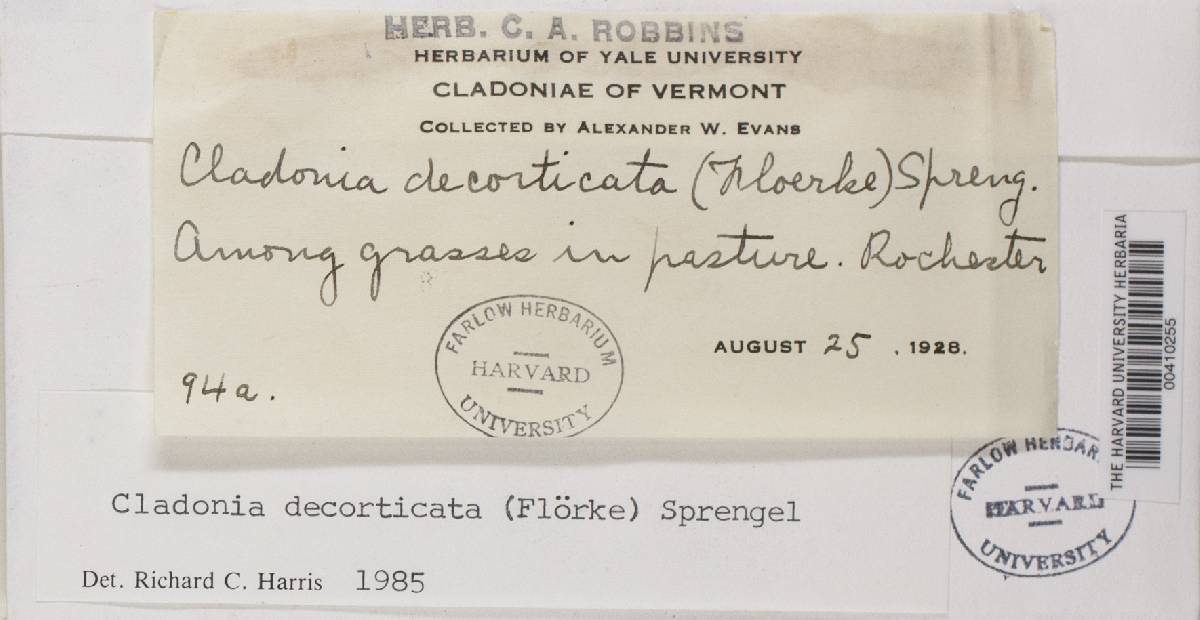 HERB. C. A. ROBBINS
HERBARIUM OF YALE UNIVERSITY
CLADONIAE OF VERMONT
COLLECTED BY ALEXANDER W. EVANS
Cladonia decorticata (Floerke) Spreng.
Among grasses in pasture. Rochester
AUGUST 25, 1928.
94a.
FARLOW HERBARIUM
HARVARD
UNIVERSITY
THE HARVARD UNIVERSITY HERBARIA
00410255
FARLOW HERBAR
HARVARD
UNIVERSITY
Cladonia decorticata (Flörke) Sprengel
Det. Richard C. Harris 1985